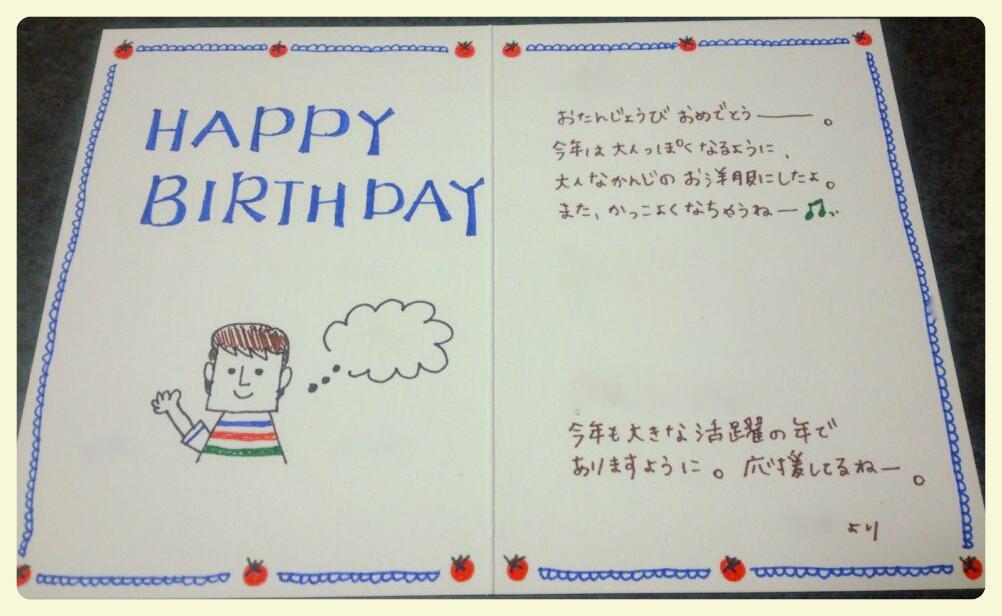 HAPPY
BIRTHDAY
おたんじょうび おめでとう――。
今年は大人っぽくなるように、
大人なかんじの お洋服にしたよ。
また、かっこよくなちゃうねー♫
今年も大きな活躍の年で
ありますように。応援してるねー。
より